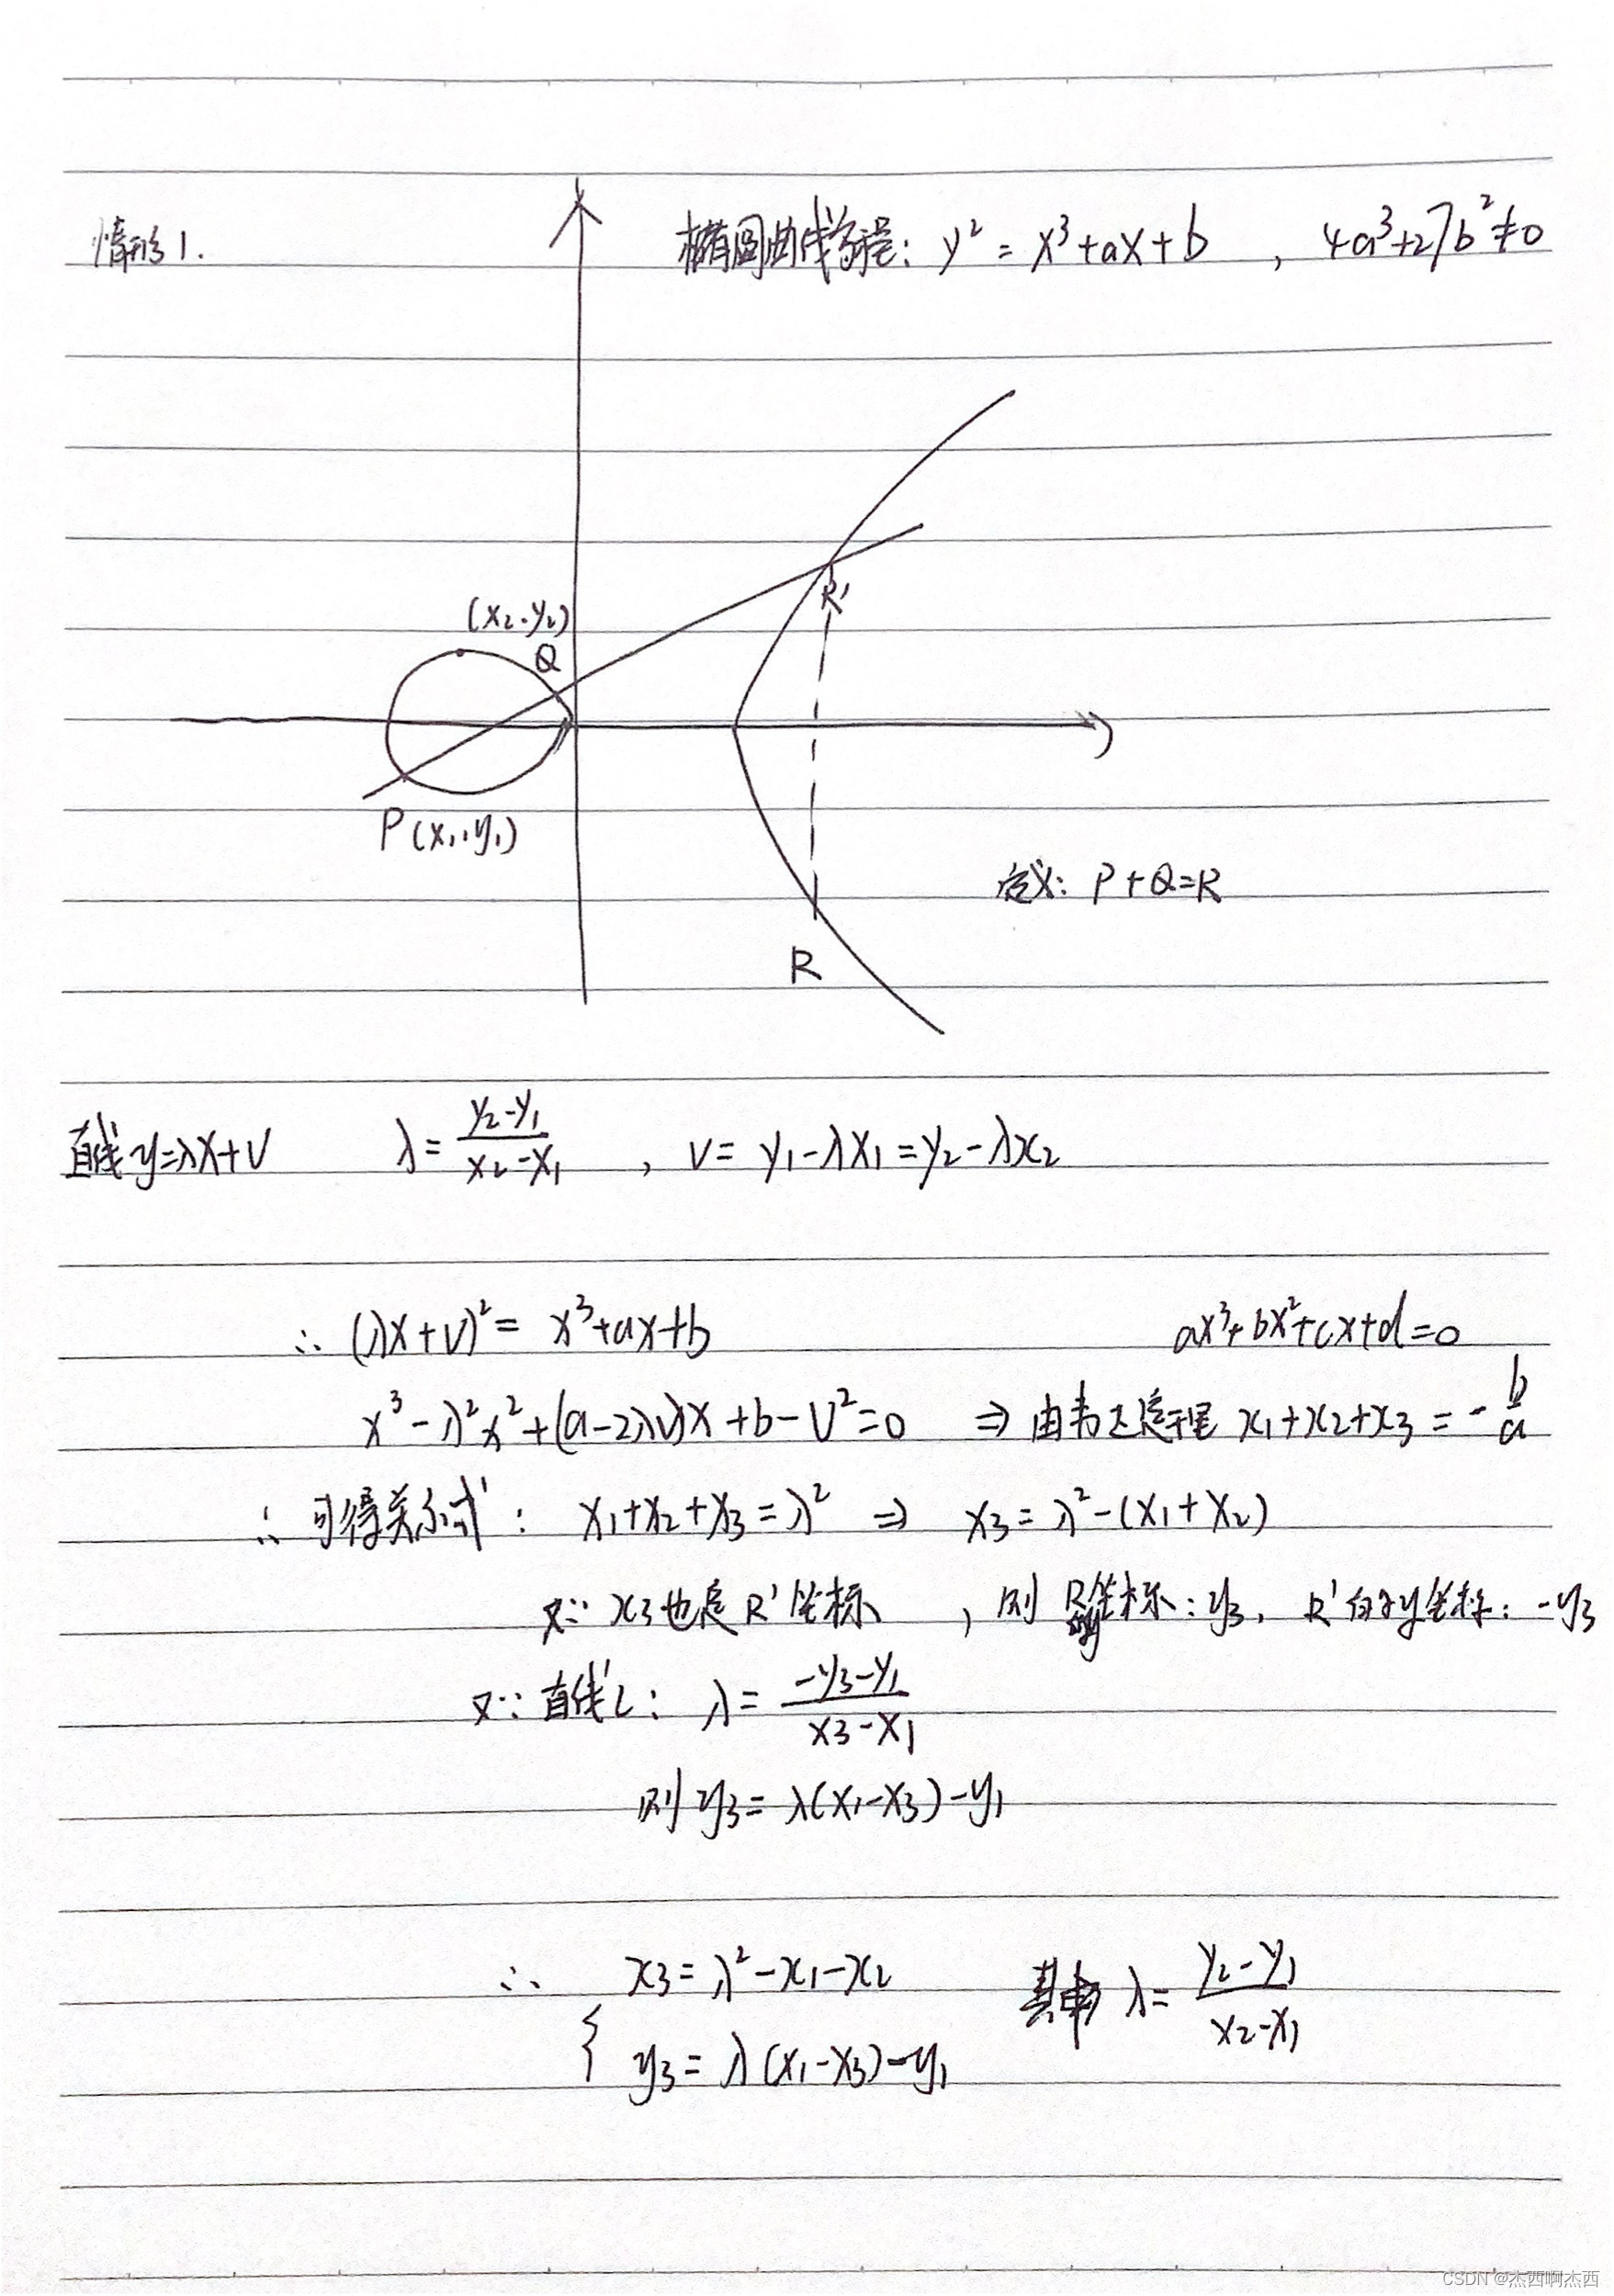 情形1.
椭圆曲线方程: y² = x³+ax+b , 4a³+27b²≠0
R'
(x₂.y₂)
Q
P(x₁,y₁)
定义: P+Q=R
R
直线 y=λx+v λ=\frac{y₂-y₁}{x₂-x₁} , v= y₁-λx₁=y₂-λx₂
∴ (λx+v)²= x³+ax+b ax³+bx²+cx+d=0
x³-λ²x²+(a-2λv)x+b-v²=0 ⇒ 由韦达定理 x₁+x₂+x₃=-\frac{b}{a}
∴ 可得关系式: x₁+x₂+x₃=λ² ⇒ x₃=λ²-(x₁+x₂)
又∵ x₃也是R'坐标 , 则 R y坐标: y₃, R'的y坐标: -y₃
又∵ 直线L: λ=\frac{-y₃-y₁}{x₃-x₁}
则 y₃= λ(x₁-x₃)-y₁
∴ { x₃= λ²-x₁-x₂ 其中 λ=\frac{y₂-y₁}{x₂-x₁}
y₃= λ(x₁-x₃)-y₁
CSDN @杰西啊杰西